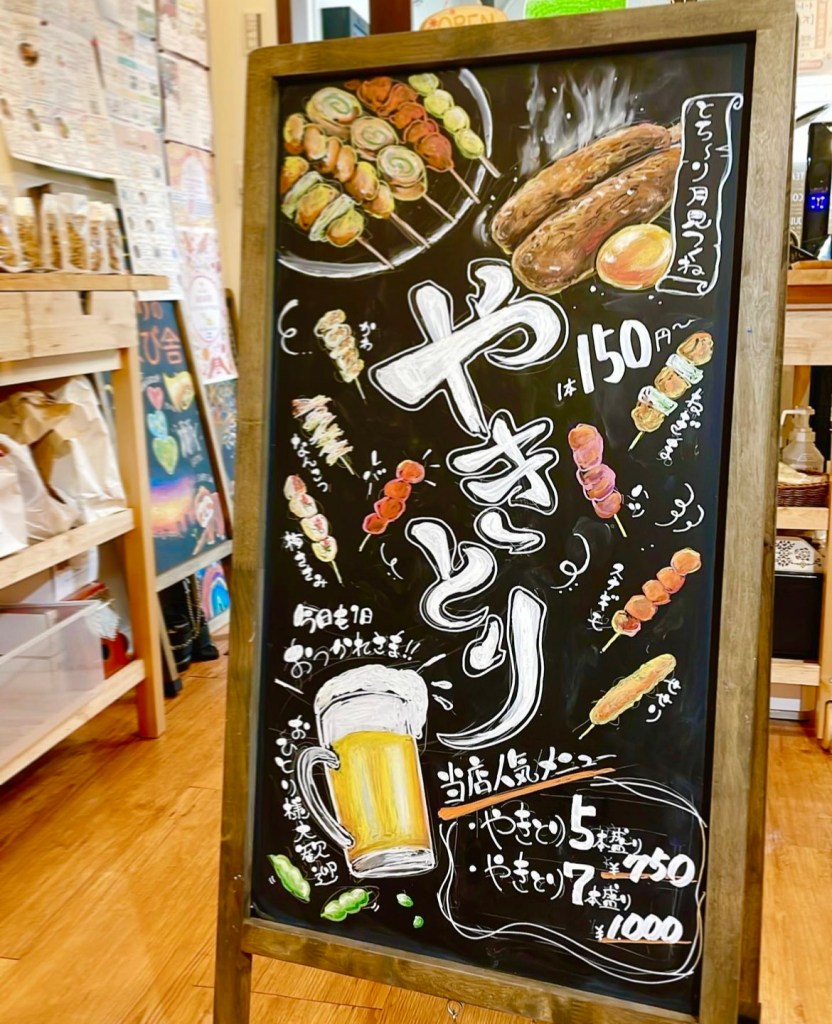 OPEN
とろ〜り月見つくね
やきとり
1本150円〜
かわ
なんこつ
梅ささみ
せせり
今日も1日
おつかれさま!!
おひとり様大歓迎
当店人気メニュー
・やきとり5本盛り
¥750
・やきとり7本盛り
¥1000